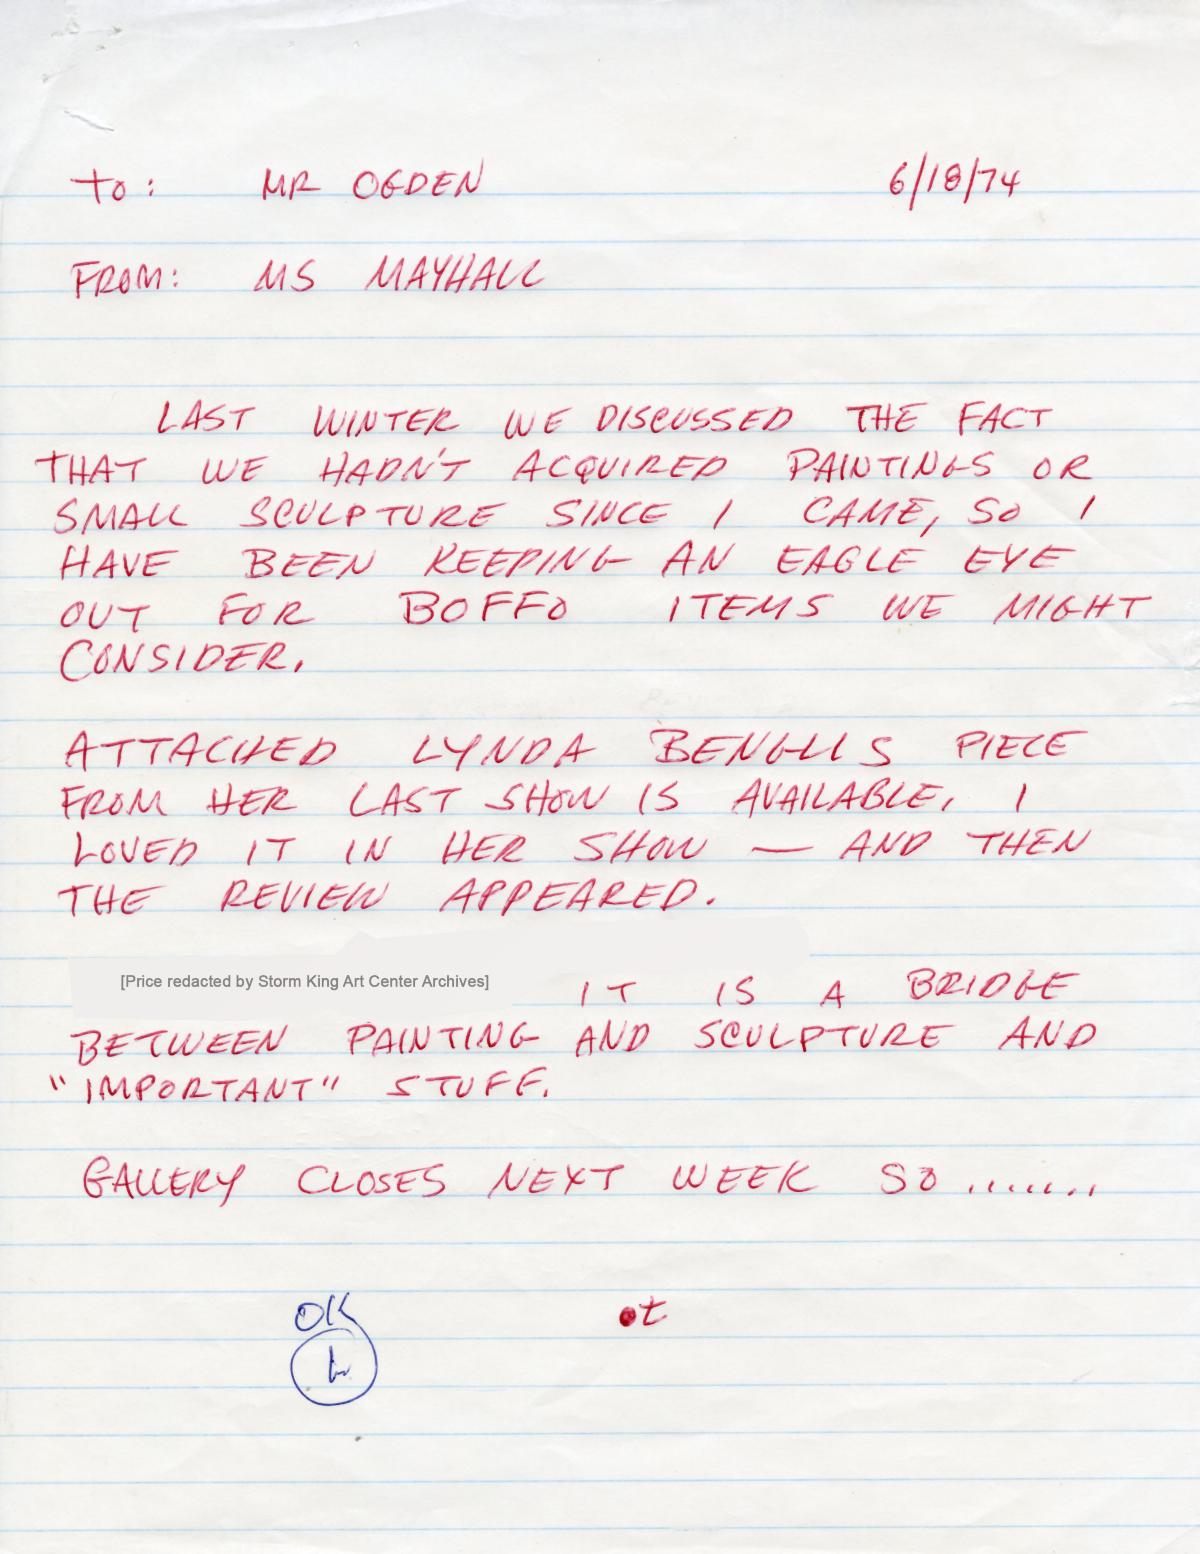 To: MR OGDEN 6/18/74
FROM: MS MAYHALL
LAST WINTER WE DISCUSSED THE FACT
THAT WE HADN'T ACQUIRED PAINTINGS OR
SMALL SCULPTURE SINCE I CAME, SO I
HAVE BEEN KEEPING AN EAGLE EYE
OUT FOR BOFFO ITEMS WE MIGHT
CONSIDER.
ATTACHED LYNDA BENGLIS PIECE
FROM HER LAST SHOW IS AVAILABLE. I
LOVED IT IN HER SHOW — AND THEN
THE REVIEW APPEARED.
[Price redacted by Storm King Art Center Archives] IT IS A BRIDGE
BETWEEN PAINTING AND SCULPTURE AND
"IMPORTANT" STUFF.
GALLERY CLOSES NEXT WEEK SO ........
OK